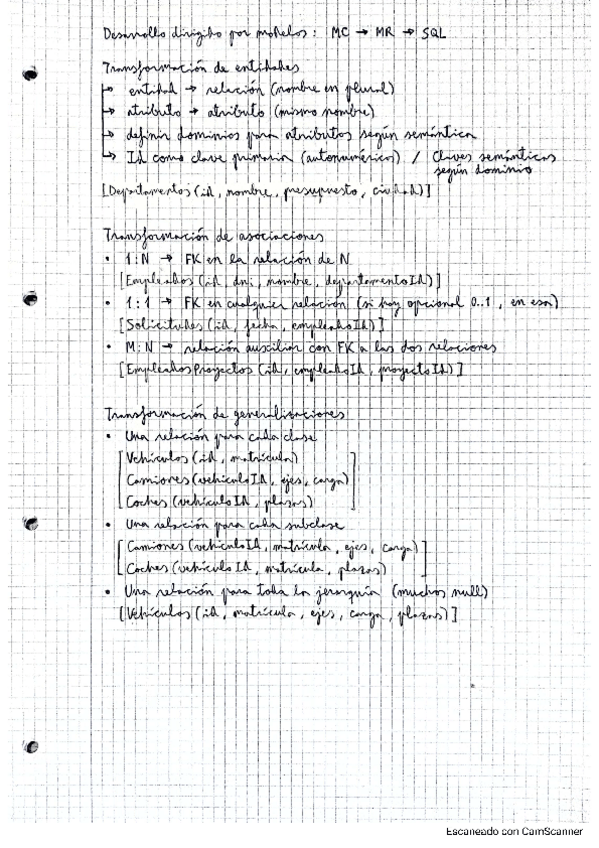 Desarrollo dirigido por modelos: MC → MR → SQL
Transformación de entidades
→ entidad → relación (nombre en plural)
→ atributo → atributo (mismo nombre)
→ definir dominios para atributos según semántica
→ Id como clave primaria (autonumérico) / Claves semánticas
según dominio
[Departamentos (id, nombre, presupuesto, ciudad)]
Transformación de asociaciones
• 1:N → FK en la relación de N
[Empleados (id, dni, nombre, departamentoId)]
• 1:1 → FK en cualquier relación (si hay opcional 0..1, en esa)
[Solicitudes (id, fecha, empleadoId)]
• M:N → relación auxiliar con FK a las dos relaciones
[EmpleadosProyectos (id, empleadoId, proyectoId)]
Transformación de generalizaciones
• Una relación para cada clase
[Vehículos (id, matrícula)
Camiones (vehículoId, ejes, carga)
Coches (vehículoId, plazas)]
• Una relación para cada subclase
[Camiones (vehículoId, matrícula, ejes, carga)
Coches (vehículoId, matrícula, plazas)]
• Una relación para toda la jerarquía (muchos null)
[Vehículos (id, matrícula, ejes, carga, plazas)]
Escaneado con CamScanner